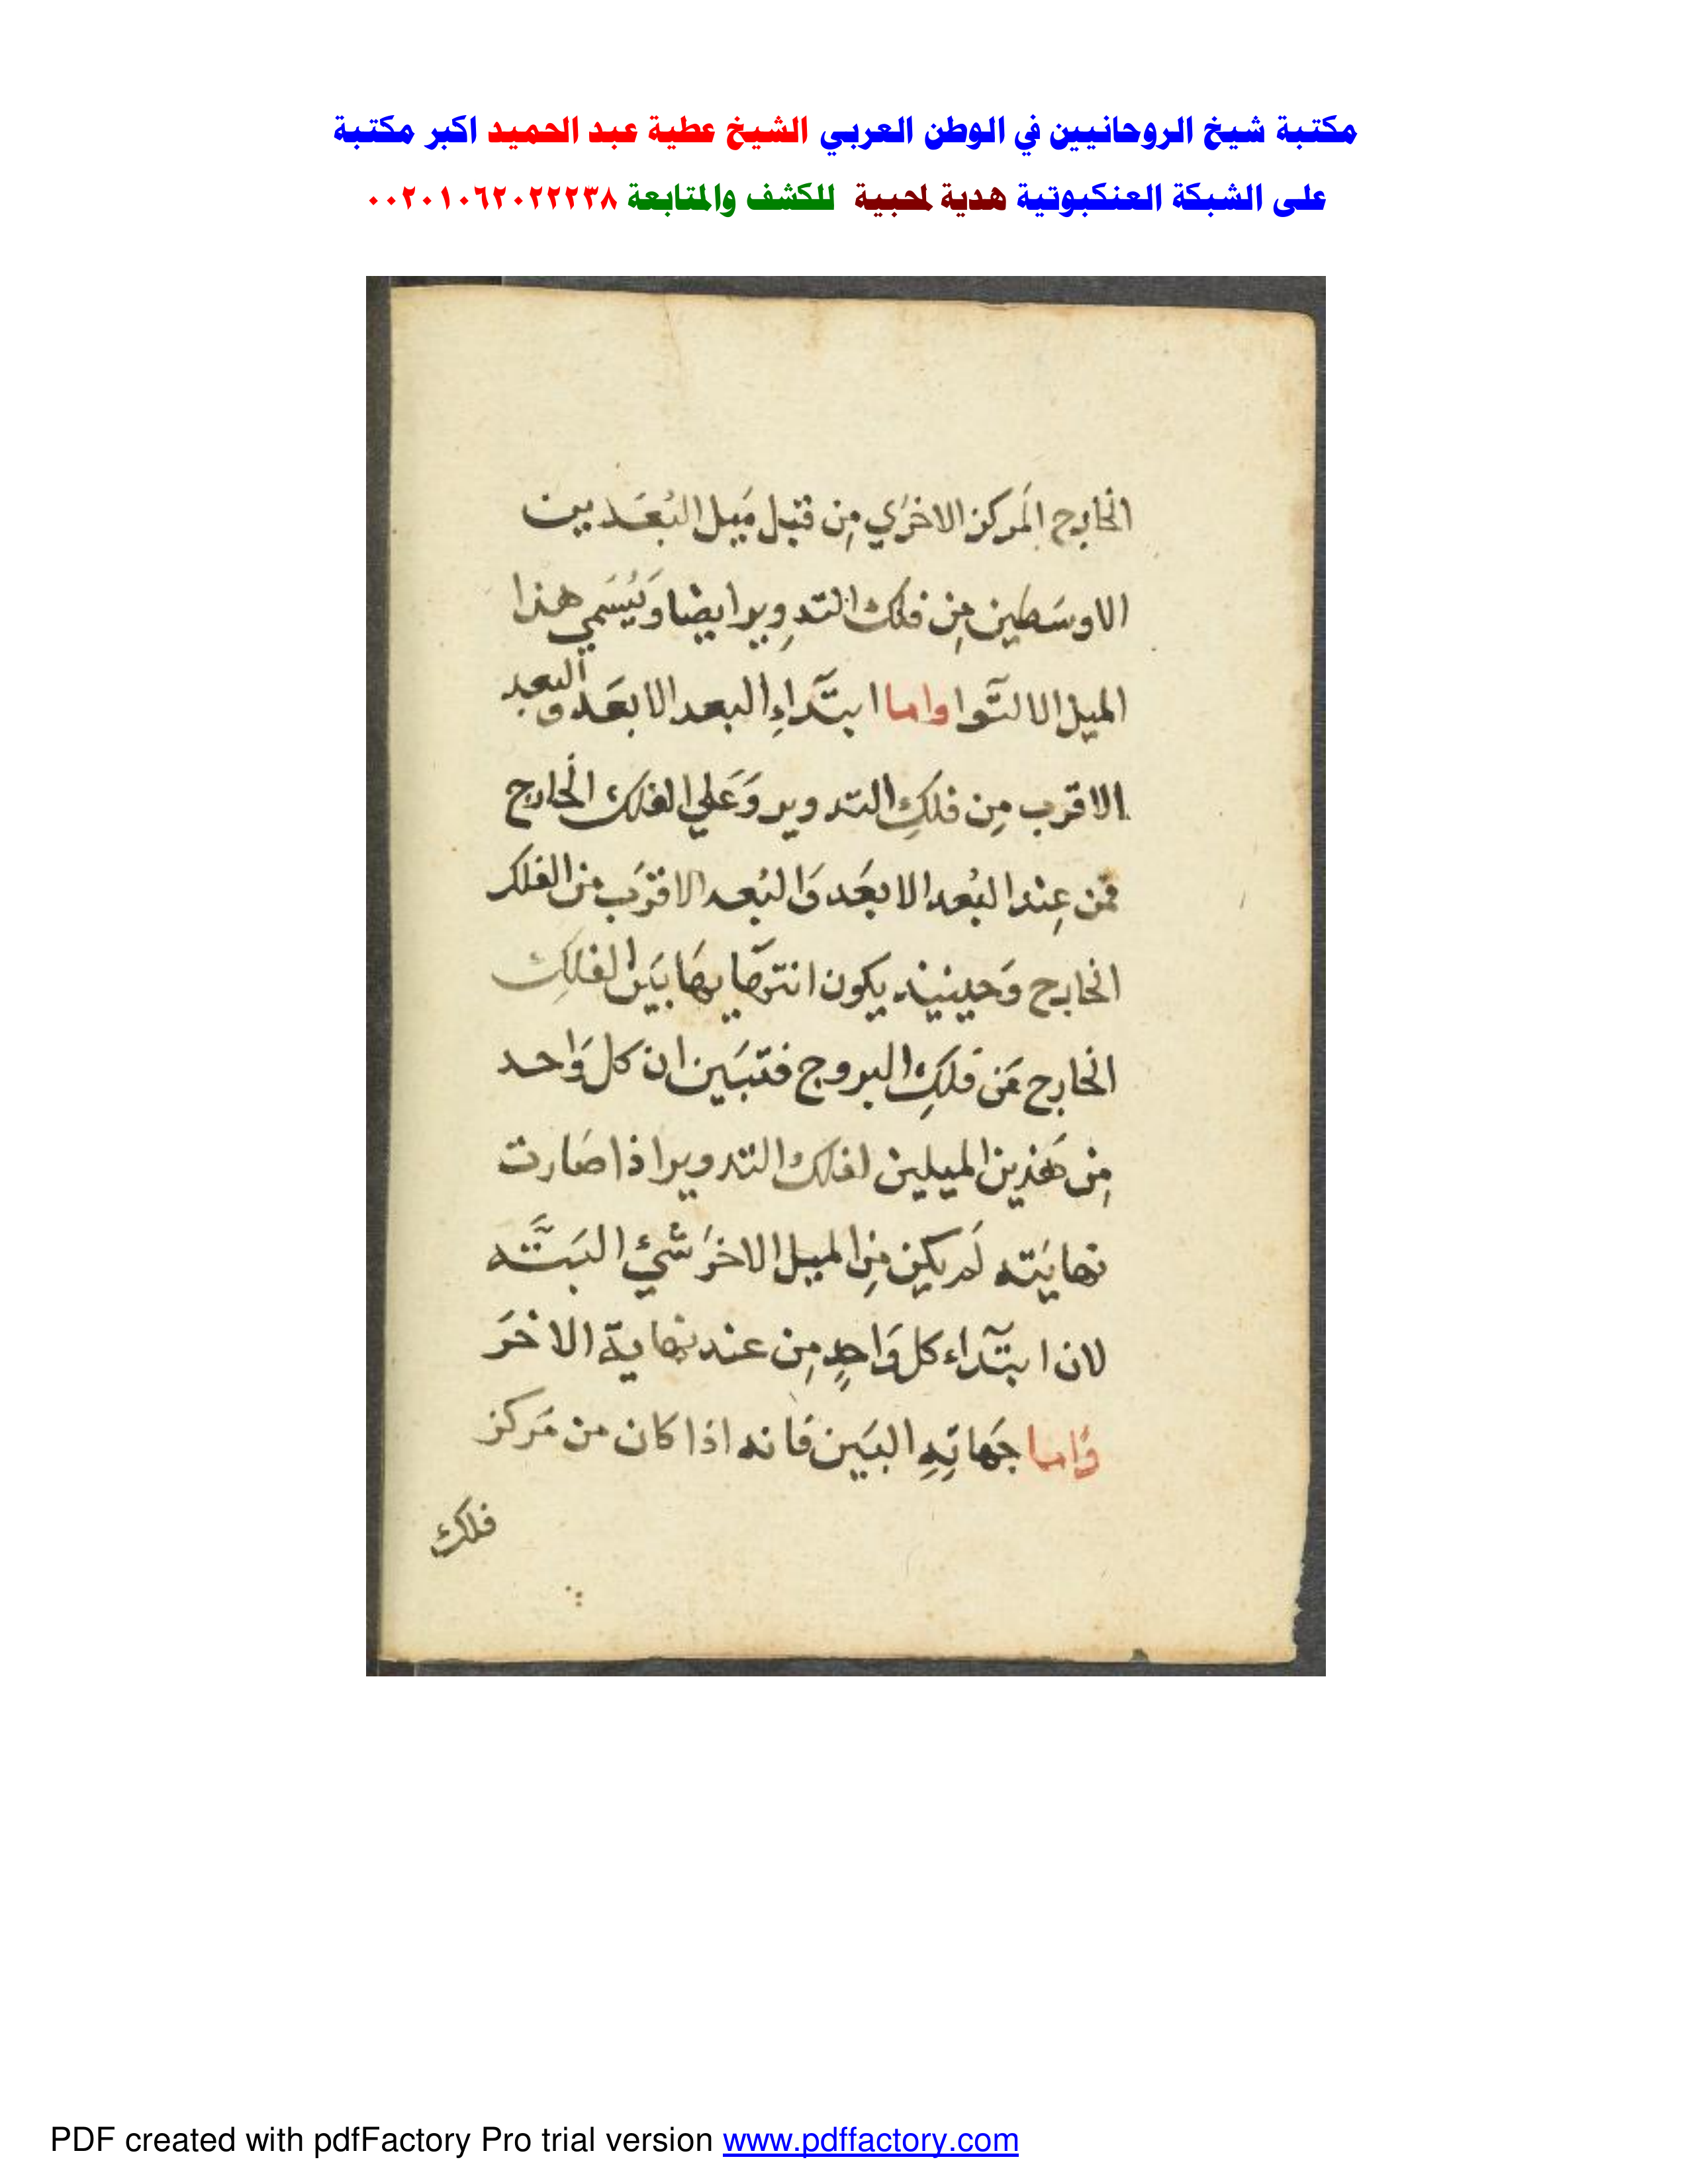 مكتبة شيخ الروحانيين في الوطن العربي الشيخ عطية عبد الحميد اكبر مكتبة
على الشبكة العنكبوتية هدية لمحبية للكشف والمتابعة ٠٠٢٠١٠٦٢٠٢٢٢٣٨
الخارج المَركز الاخرَي مِن قبل مَيل البُعَد بين
الاوسَطين مِن فلك التدِوير ايضا وَيُسَمي هذا
الميل الالتوا واما ابتدَاءِ البعد الابعَد والبعد
الاقرَب مِن فلكِ التدوير وَعَلي الفلك الخَارج
فمن عِند البُعد الابعَد وَالبُعد الاقرَب من الفلك
الخارج وَحينيذ يكون انتهَا بهَا بَين الفلكِ
الخارج عَن فلكِ البروج فتبَين ان كل وَاحد
مِن هَذين الميلين لفلك التدوير اذا صَارت
نهايَته لَم يكن مِن الميل الاخرَ شئ البَتَّه
لان ابتدَاء كل وَاحِدٍ مِن عند نهاية الاخرَ
وَاما جَهاتِهِ البَين فَانه اذا كان من مَركز
فلك
PDF created with pdfFactory Pro trial version www.pdffactory.com